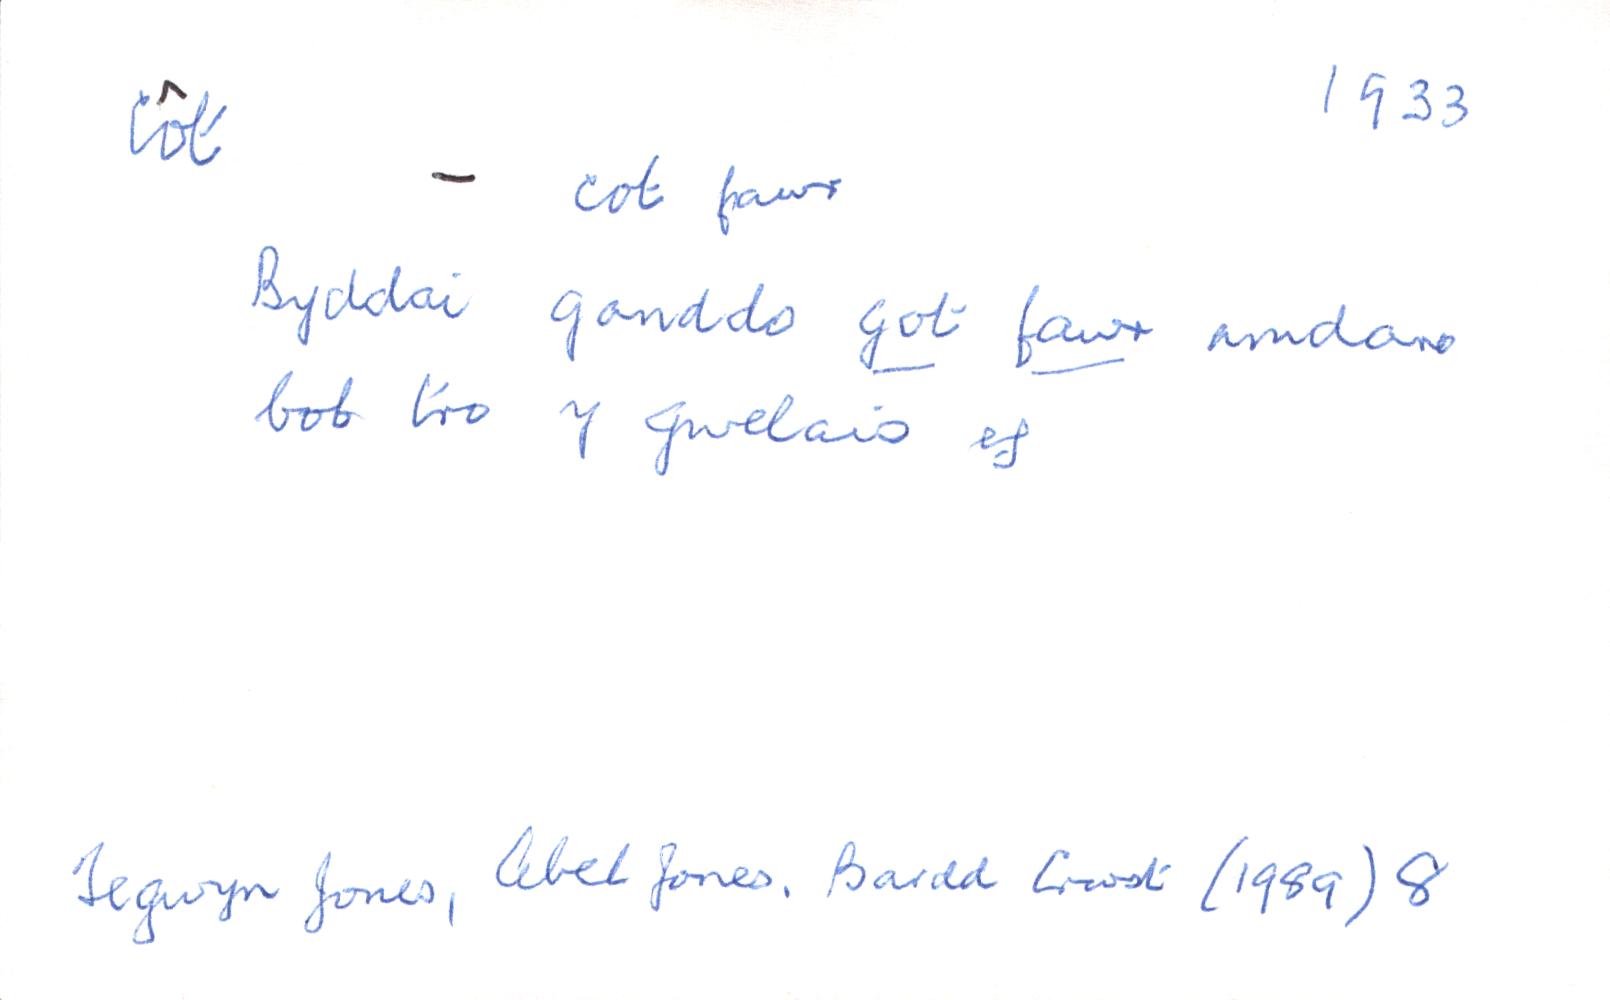 côt 1933
– cot fawr
Byddai ganddo got fawr amdano
bob tro y gwelais ef
Tegwyn Jones, Abel Jones, Bardd Crwst (1989) 8